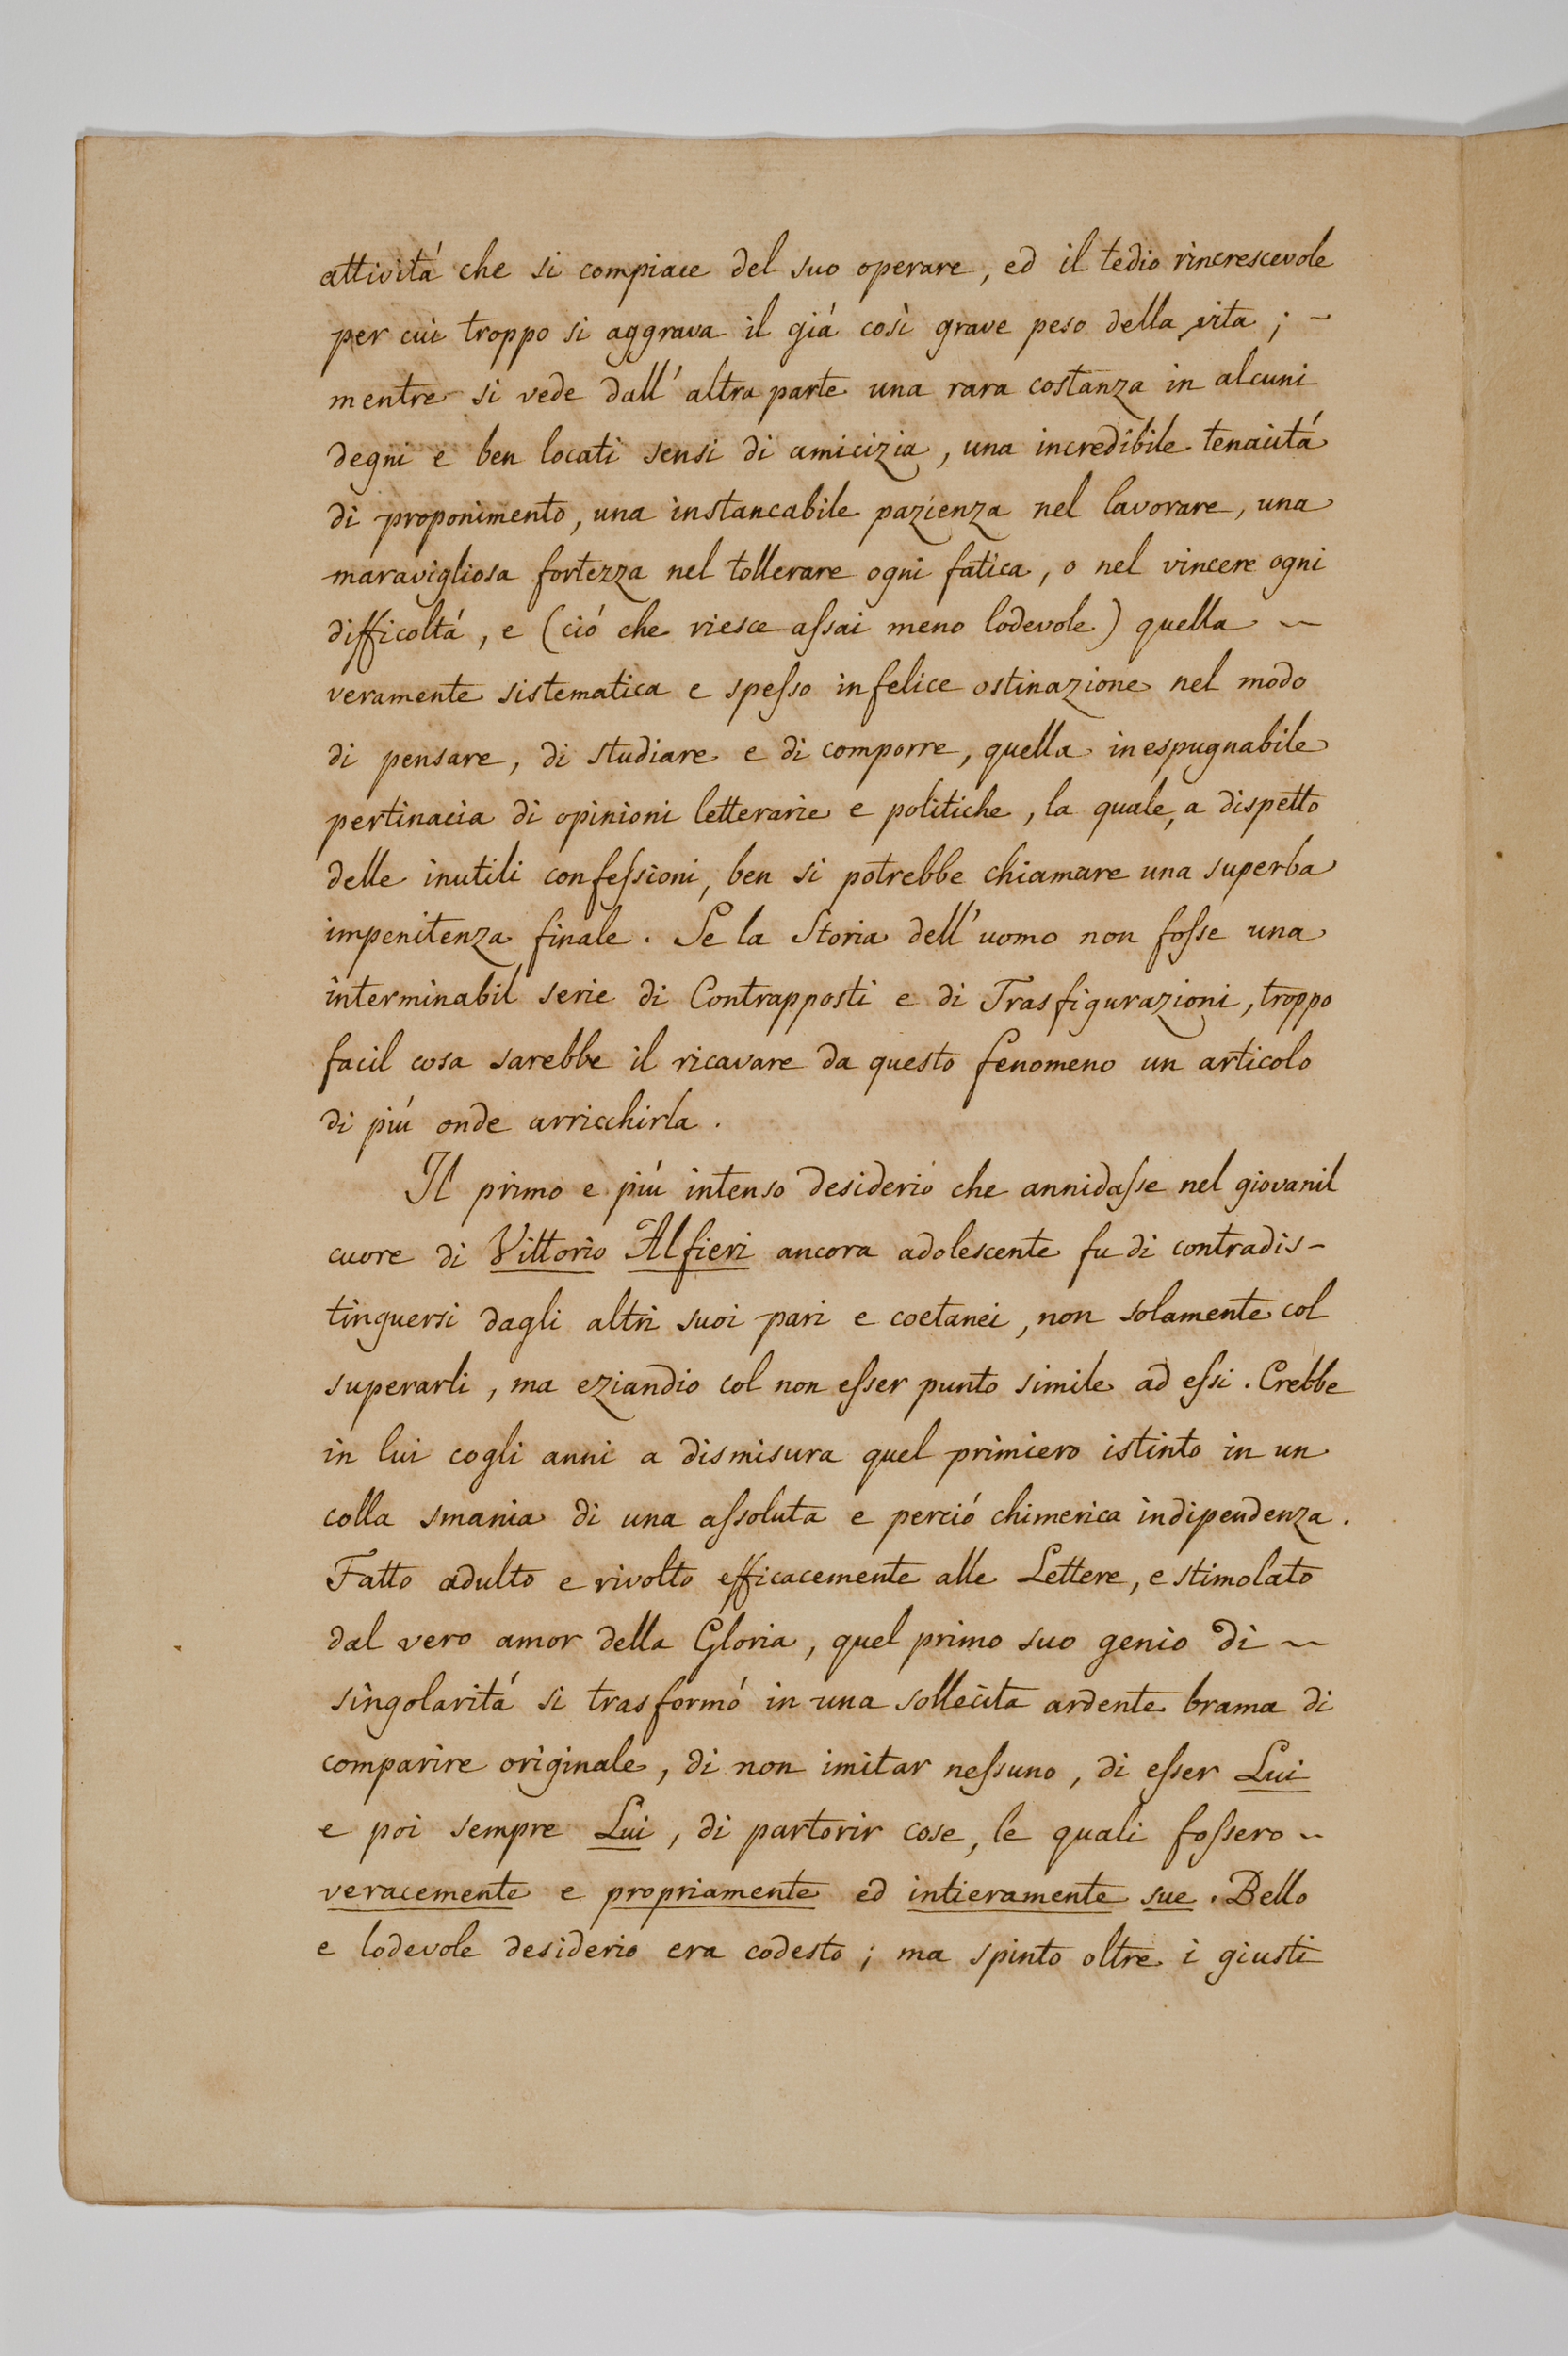 attivitá che si compiace del suo operare, ed il tedio rincrescevole
per cui troppo si aggrava il giá così grave peso della vita; ~
mentre si vede dall'altra parte una rara costanza in alcuni
degni e ben locati sensi di amicizia, una incredibile tenacitá
di proponimento, una instancabile pazienza nel lavorare, una
maravigliosa fortezza nel tollerare ogni fatica, o nel vincere ogni
difficoltá, e (ció che riesce aſsai meno lodevole) quella ~
veramente sistematica e speſso infelice ostinazione nel modo
di pensare, di studiare e di comporre, quella inespugnabile
pertinacia di opinioni letterarie e politiche, la quale, a dispetto
delle inutili confeſsioni, ben si potrebbe chiamare una superba
impenitenza finale. Se la Storia dell'uomo non foſse una
interminabil serie di Contrapposti e di Trasfigurazioni, troppo
facil cosa sarebbe il ricavare da questo fenomeno un articolo
di piú onde arricchirla.
Il primo e piú intenso desiderio che annidaſse nel giovanil
cuore di Vittorio Alfieri ancora adolescente fu di contradis-
tinguersi dagli altri suoi pari e coetanei, non solamente col
superarli, ma eziandio col non eſser punto simile ad eſsi. Crebbe
in lui cogli anni a dismisura quel primiero istinto in un
colla smania di una aſsoluta e perció chimerica indipendenza.
Fatto adulto e rivolto efficacemente alle Lettere, e stimolato
dal vero amor della Gloria, quel primo suo genio di ~
singolaritá si trasformó in una sollecita ardente brama di
comparire originale, di non imitar neſsuno, di eſser Lui
e poi sempre Lui, di partorir cose, le quali foſsero ~
veracemente e propriamente ed intieramente sue. Bello
e lodevole desiderio era codesto; ma spinto oltre i giusti